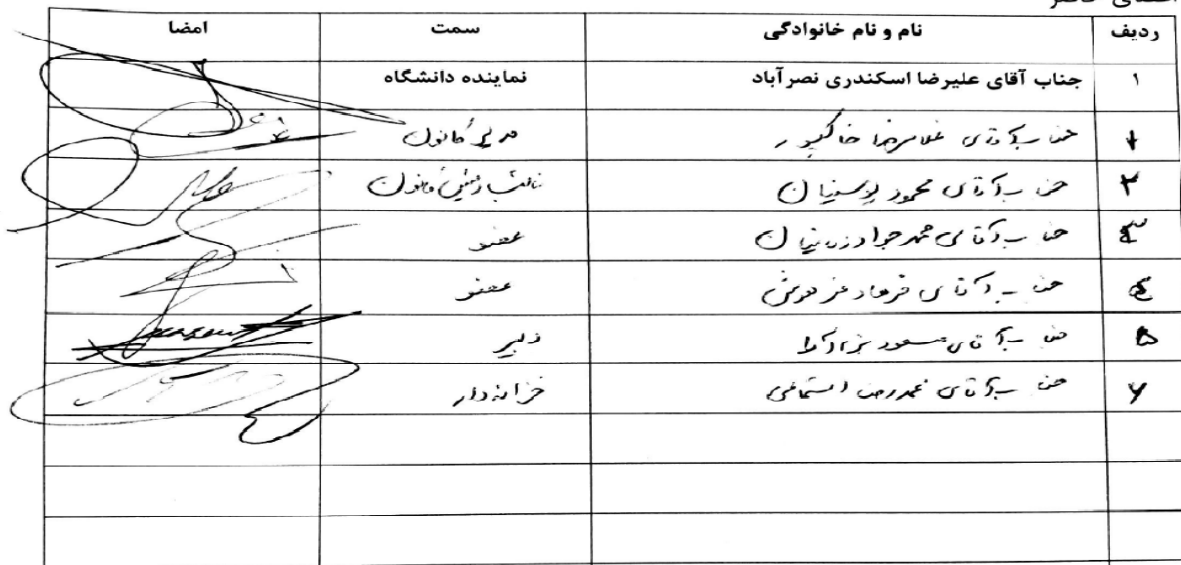 ردیف نام و نام خانوادگی سمت امضا
۱ جناب آقای علیرضا اسکندری نصرآباد نماینده دانشگاه
۱ جناب آقای غلامرضا خاکپور مدیر کانون
۲ جناب آقای محمود یوسفیان نائب رئیس کانون
۳ جناب آقای محمدجواد عضو
۴ جناب آقای فرهاد عضو
۵ جناب آقای مسعود دبیر
۶ جناب آقای محمدرضا خزانه‌دار